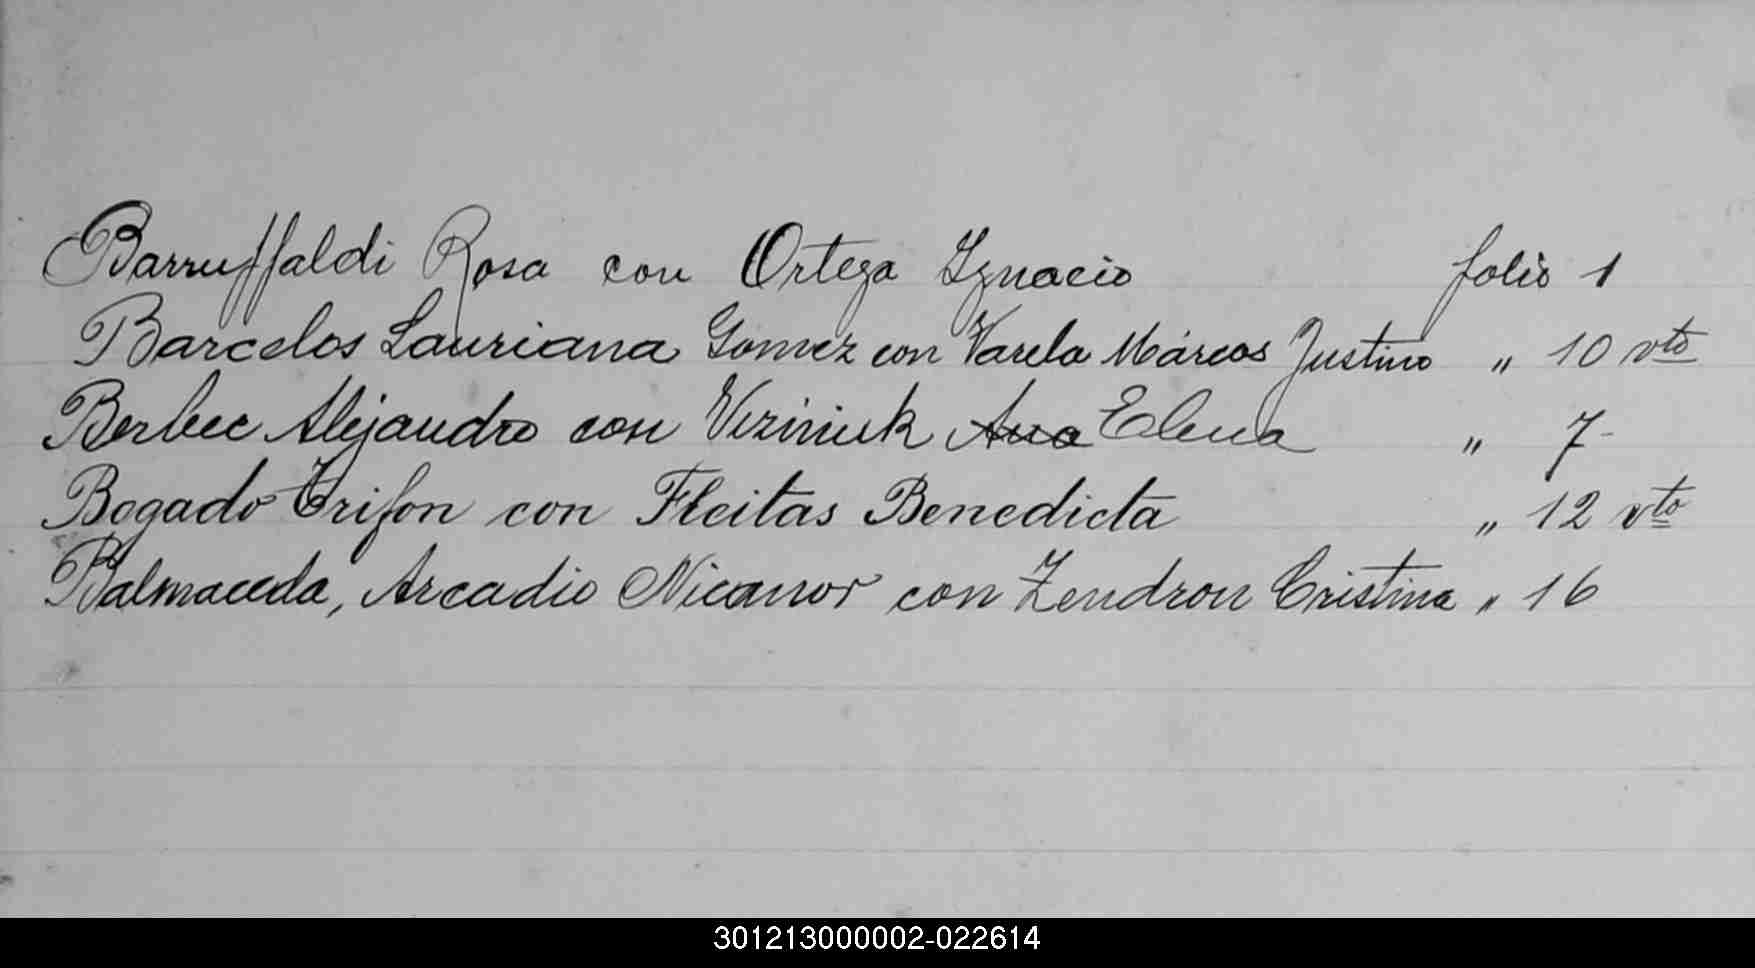 Barruffaldi Rosa con Ortega Ignacio folio 1
Barcelos Lauriana Gomez con Varela Márcos Justino " 10 vto
Berbec Alejandro con Viziniuk Ana Elena " 7-
Bogado Trifon con Fleitas Benedicta " 12 vto
Balmaceda, Arcadio Nicanor con Zendron Cristina " 16
301213000002-022614